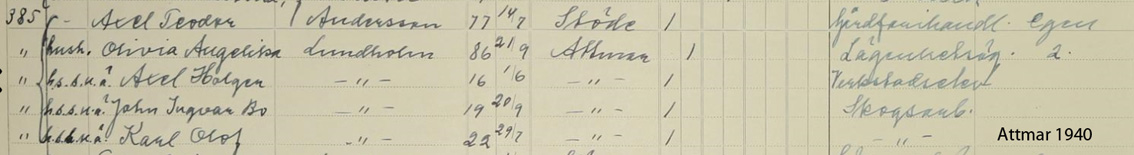 385 - Axel Teodor Andersson 77 14/7 Stöde 1 Gårdfarihandl. Egen
" hush. Olivia Angelika Lundholm 86 21/9 Attmar 1 Lägenhetsäg. 2.
" h.s.s.u.ä. Axel Holger - " - 16 1/6 - " - 1 Verkstadselev
" h.s.s.u.ä. John Ingvar Bo - " - 19 20/9 - " - 1 Skogsarb.
" h.s.s.u.ä. Karl Olof - " - 22 29/7 - " - 1 - " -
Attmar 1940